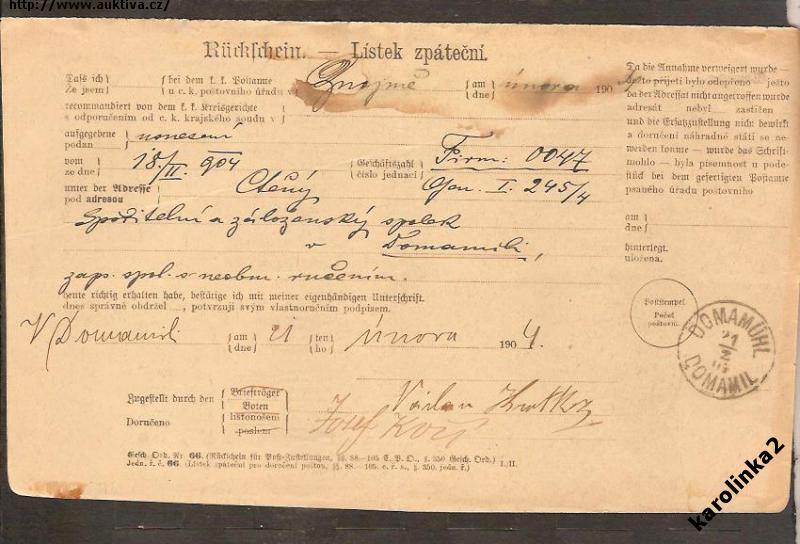 http://www.auktiva.cz/
Rückschein. — Lístek zpáteční.
Daſs ich
Že jsem
bei dem k. k. Postamte
u c. k. poštovního úřadu v
Znojmě
am
dne
února
190
recommandiert von dem k. k. Kreisgerichte
s odporučením od c. k. krajského soudu v
aufgegebene
podan
usnesení
vom
ze dne
18./II. 904
Geschäftszahl
číslo jednací
Firm: 0047
Gen. I. 245/4
unter der Adresse
pod adresou
Ctěný
Spořitelní a záloženský spolek
v Domamili,
zap. spol. s neobm. ručením.
heute richtig erhalten habe, bestätige ich mit meiner eigenhändigen Unterschrift.
dnes správně obdržel ..., potvrzuji svým vlastnoručním podpisem.
V Domamili
am
dne
21
ten
ho
února
1904.
Zugestellt durch den
Doručeno
Briefträger
Boten
listonošem
poslem
Josef Kočí
Geſch. Ord. Nr. 66. (Rückschein für Post-Zustellungen, §§. 88.—105 C. P. O., §. 350 Gesch. Ord.)
Jedn. ř. č. 66. (Lístek zpáteční pro doručení poštou, §§. 88.—105. c. ř. s., §. 350. jedn. ř.)
I./II.
Da die Annahme verweigert wurde —
že přijetí bylo odepřeno — jesto
da der Adressat nicht angetroffen wurde
adresát nebyl zastižen
und die Ersatzzustellung nicht bewirkt
a doručení náhradné státi se ne-
werden konnte — wurde das Schrift-
mohlo — byla písemnost u pode-
stück bei dem gefertigten Postamte
psaného úřadu poštovního
am
dne
hinterlegt.
uložena.
Poststempel.
Pečeť
poštovní.
DOMAMÜHL
21
2
DOMAMIL
karolinka2